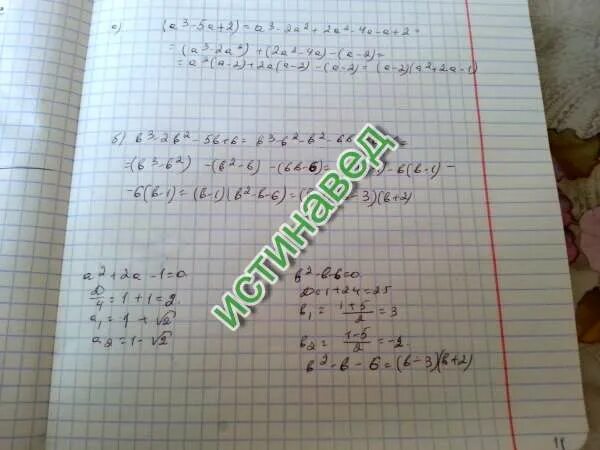 а) (a³-5a+2)=a³-2a²+2a²-4a-a+2=
=(a³-2a²)+(2a²-4a)-(a-2)=
=a²(a-2)+2a(a-2)-(a-2)=(a-2)(a²+2a-1)
б) b³-2b²-5b+6=b³-b²-b²-6b =
=(b³-b²) -(b²-b) -(6b-6)= -6(b-1)=
-6(b-1)=(b-1)(b²-b-6)=( -3)(b+2)
a²+2a-1=0
D/4=1+1=2.
a₁=1+√2
a₂=1-√2
b²-b-6=0.
D=1+24=25
b₁=(1+5)/2=3
b₂=(1-5)/2=-2.
b²-b-6=(b-3)(b+2)
истинавед